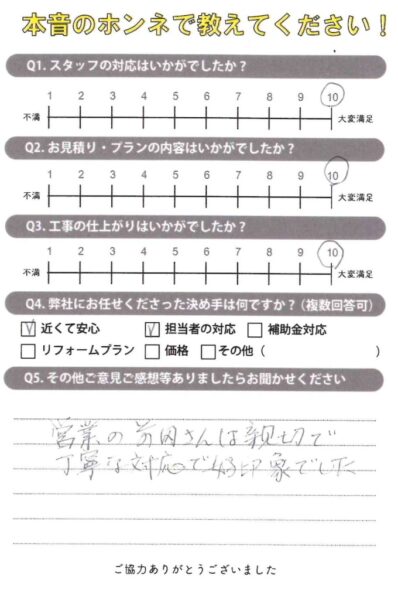 本音のホンネで教えてください！
Q1. スタッフの対応はいかがでしたか？
1 2 3 4 5 6 7 8 9 10
不満 大変満足
Q2. お見積り・プランの内容はいかがでしたか？
1 2 3 4 5 6 7 8 9 10
不満 大変満足
Q3. 工事の仕上がりはいかがでしたか？
1 2 3 4 5 6 7 8 9 10
不満 大変満足
Q4. 弊社にお任せくださった決め手は何ですか？（複数回答可）
近くて安心 担当者の対応 補助金対応
リフォームプラン 価格 その他（ ）
Q5. その他ご意見ご感想等ありましたらお聞かせください
営業の さんは親切で
丁寧な対応で好印象でした
ご協力ありがとうございました